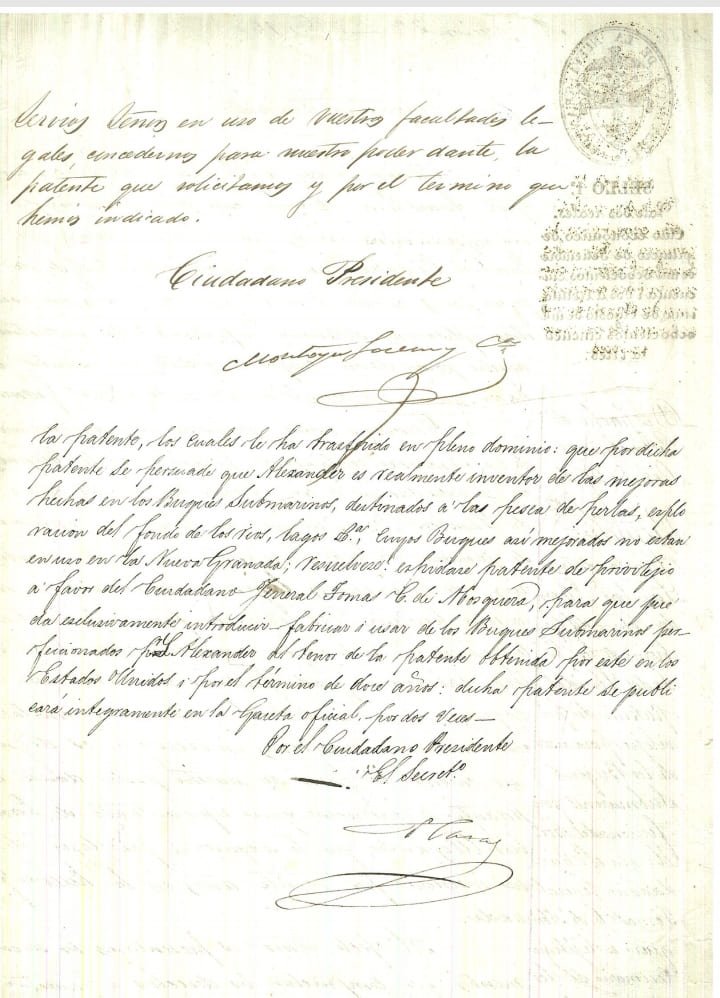 Servios Señor en uso de vuestras facultades le-
gales, concedernos para nuestro poder dante, la
patente que solicitamos y por el termino que
hemos indicado.
Ciudadano Presidente
la patente, los cuales le ha trasferido en pleno dominio: que por dicha
patente se persuade que Alexander es realmente inventor de las mejoras
hechas en los Buques Submarinos, destinados á las pesca de perlas, esplo
racion del fondo de los rios, lagos &a, cuyos Buques así mejorados no estan
en uso en la Nueva Granada; resuelvese: espidase patente de privilejio
a favor del Ciudadano Jeneral Tomas C. de Mosquera, para que pue
da esclusivamente introducir fabricar i usar de los Buques Submarinos per-
feccionados por Alexander al tenor de la patente obtenida por este en los
Estados Unidos i por el término de doce años: dicha patente se publi
cará integramente en la Gaceta oficial por dos veces—
Por el Ciudadano Presidente
El Secreto.